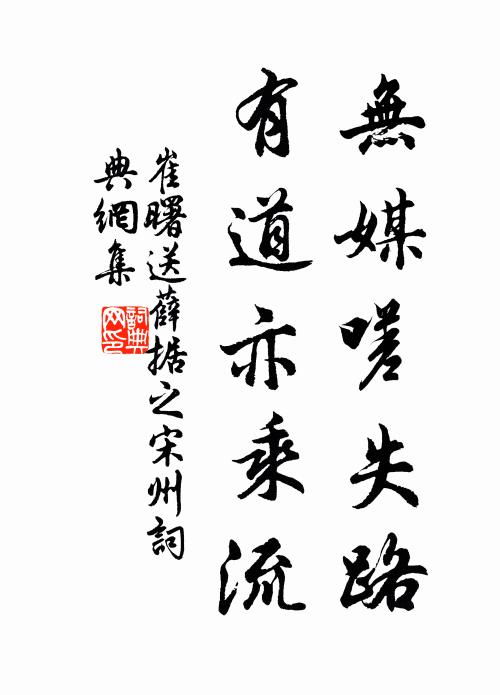 無媒嗟失路
有道亦乘流
崔曙送薛据之宋州詞
典網集
詞典
网印